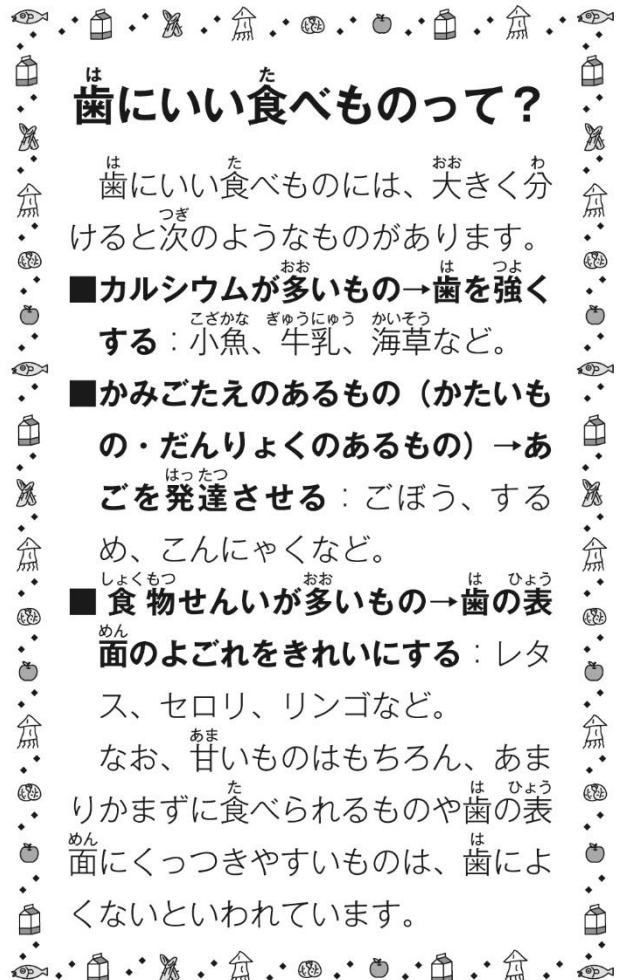 歯にいい食べものって？
歯にいい食べものには、大きく分
けると次のようなものがあります。
■カルシウムが多いもの→歯を強く
する：小魚、牛乳、海草など。
■かみごたえのあるもの（かたいも
の・だんりょくのあるもの）→あ
ごを発達させる：ごぼう、する
め、こんにゃくなど。
■食物せんいが多いもの→歯の表
面のよごれをきれいにする：レタ
ス、セロリ、リンゴなど。
なお、甘いものはもちろん、あま
りかまずに食べられるものや歯の表
面にくっつきやすいものは、歯によ
くないといわれています。